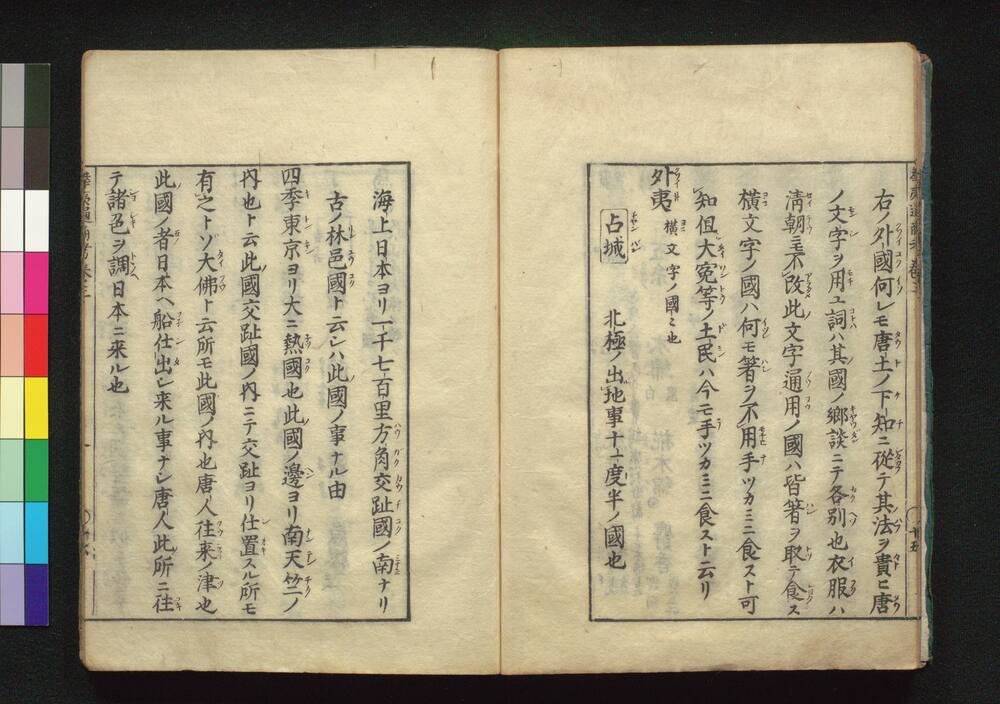 右ノ外國何レモ唐土ノ下知ニ從テ其法ヲ貴ヒ唐
ノ文字ヲ用ユ詞ハ其國ノ鄉談ニテ各別也衣服ハ
淸朝ニ不改此文字通用ノ國ハ皆箸ヲ取テ食ス
橫文字ノ國ハ何モ箸ヲ不用手ツカミニ食スト可
知但大寃等ノ土民ハ今モ手ツカミニ食スト云リ
外夷 橫文字ノ國ミ也
占城 北極ノ出地事十一度半ノ國也
海上日本ヨリ一千七百里方角交趾國ノ南ナリ
古ノ林邑國ト云シハ此國ノ事ナル由
四季東京ヨリ大ニ熱國也此國ノ邊ヨリ南天竺ノ
內也ト云此國交趾國ノ內ニテ交趾ヨリ仕置スル所モ
有之トソ大佛ト云所モ此國ノ內也唐人往来ノ津也
此國ノ者日本ヘ船仕出シ来ル事ナシ唐人此所ニ往
テ諸邑ヲ調日本ニ来ル也